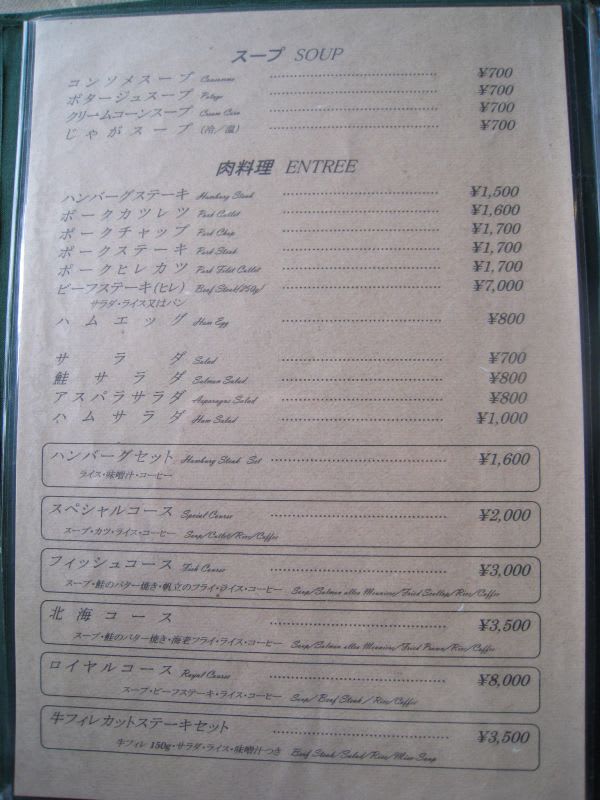 スープ SOUP
コンソメスープ Consomme ¥700
ポタージュスープ Potage ¥700
クリームコーンスープ Cream Corn ¥700
じゃがスープ (冷/温) ¥700
肉料理 ENTREE
ハンバーグステーキ Hamburg Steak ¥1,500
ポークカツレツ Pork Cutlet ¥1,600
ポークチャップ Pork Chop ¥1,700
ポークステーキ Pork Steak ¥1,700
ポークヒレカツ Pork Filet Cutlet ¥1,700
ビーフステーキ(ヒレ) Beef Steak(250g) ¥7,000
サラダ・ライス又はパン
ハムエッグ Ham Egg ¥800
サラダ Salad ¥700
鮭サラダ Salmon Salad ¥800
アスパラサラダ Asparagus Salad ¥800
ハムサラダ Ham Salad ¥1,000
ハンバーグセット Hamburg Steak Set ¥1,600
ライス・味噌汁・コーヒー
スペシャルコース Special Course ¥2,000
スープ・カツ・ライス・コーヒー Soup/Cutlet/Rice/Coffee
フィッシュコース Fish Course ¥3,000
スープ・鮭のバター焼き・帆立のフライ・ライス・コーヒー Soup/Salmon alla Meuniere/Fried Scallop/Rice/Coffee
北海コース ¥3,500
スープ・鮭のバター焼き・海老フライ・ライス・コーヒー Soup/Salmon alla Meuniere/Fried Prawn/Rice/Coffee
ロイヤルコース Royal Course ¥8,000
スープ・ビーフステーキ・ライス・コーヒー Soup/Beef Steak/Rice/Coffee
牛フィレカットステーキセット ¥3,500
牛フィレ 150g・サラダ・ライス・味噌汁つき Beef Steak/Salad/Rice/Miso Soup